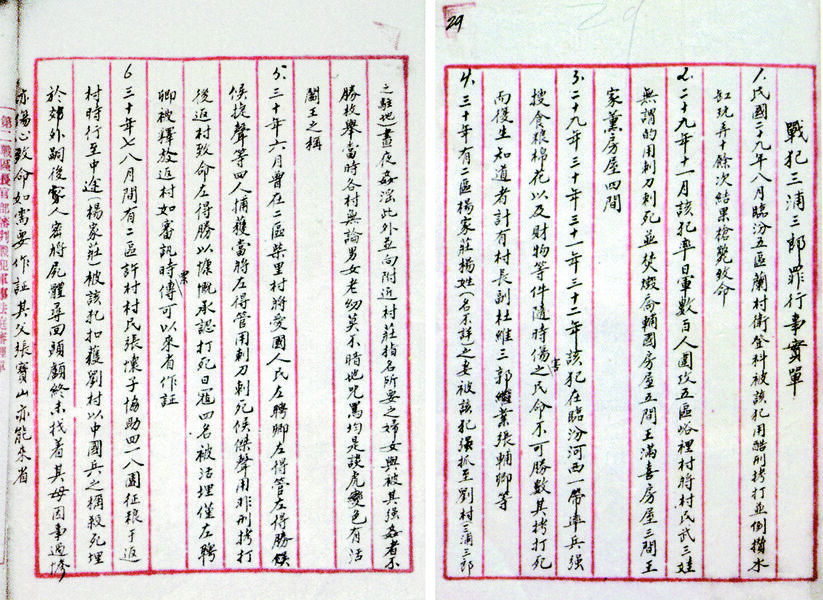 29
戰犯三浦三郎罪行事實單
1.民國二十九年八月臨汾五區蘭村衛登科被該犯用酷刑拷打並倒攢水
缸玩弄十餘次結果槍斃致命
2.二十九年十一月該犯率日軍數百人圍攻五區峪裡村將村民武三娃
無謂的用刺刀刺死並焚燬喬輔國房屋五間王滿喜房屋三間王
家薰房屋四間
3.二十九年三十年三十一年三十二年該犯在臨汾河西一帶率兵强
搜食粮棉花以及財物等件隨時傷害之民命不可勝數其拷打死
而復生知道者計有村長副杜維三郭繼業張輔卿等
4.三十年有二區楊家莊楊姓(名不詳)之妻被該犯强抓至劉村(三浦三郎
之駐地)晝夜姦淫此外並向附近村莊指名所要之婦女與被其强姦者不
勝枚舉當時各村無論男女老幼莫不暗地咒罵均是談虎變色有活
閻王之稱
5.三十年六月曾在二區柴里村將愛國人民左聘卿左得管左得勝候
候捉聲等四人捕獲當將左得管用刺刀刺死候傑聲用非刑拷打
後返村致命左得勝以慷慨承認打死日寇四名被活埋僅左聘
卿被釋放返村如審訊時傳票可以來省作証
6.三十年七八月間有二區許村村民張懷子協助四一八團征粮于返
村時行至中途(楊家莊)被該犯扣獲劉村以中國兵之稱殺死埋
於郊外嗣後家人密將屍體尋回頭顱終未找着其母因事過慘
亦傷心致命如需要作証其父張寶山亦能來省
第二戰區長官部審判戰犯軍事法庭審理單